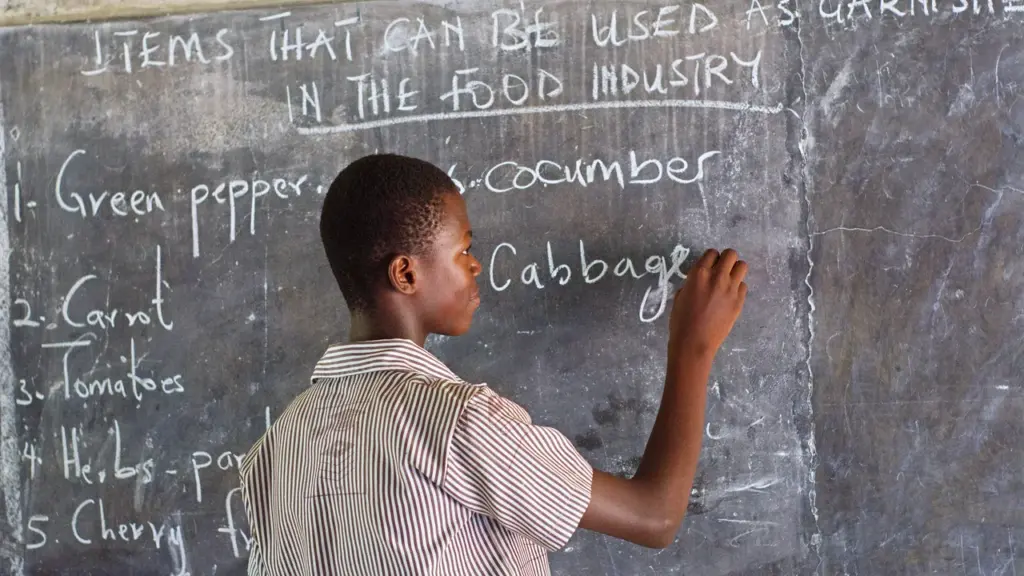 ITEMS THAT CAN BE USED AS GARNISHE
IN THE FOOD INDUSTRY
1. Green pepper.
2. Carrot
3. Tomatoes
4. Herbs - par
5. Cherry
6. Cocumber
Cabbage